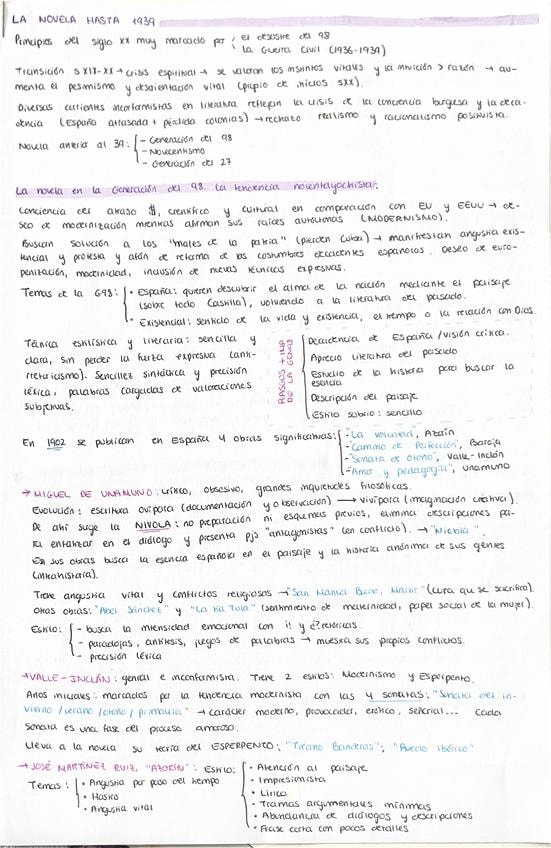 LA NOVELA HASTA 1939
Principios del siglo XX muy marcado por el desastre del 98
la Guerra Civil (1936-1939)
Transición SXIX-XX → crisis espiritual → se valoran los instintos vitales y la intuición > razón → au-
menta el pesimismo y desorientación vital (propio de inicios SXX).
Diversas corrientes inconformistas en literatura reflejan la crisis de la conciencia burguesa y la deca-
dencia (España atrasada + pérdida colonias) → rechazo realismo y racionalismo positivista.
Novela anterior al 39:
- Generación del 98
- Novecentismo
- Generación del 27
La novela en la Generación del 98. La tendencia noventayochista.
Conciencia del atraso $, científico y cultural en comparación con EU y EEUU → de-
seo de modernización mientras afirman sus raíces autóctonas (MODERNISMO).
Buscan solución a los "males de la patria" (pierden Cuba) → manifiestan angustia exis-
tencial y protesta y afán de reforma de las costumbres decadentes españolas. Deseo de euro-
peización, modernidad, inclusión de nuevas técnicas expresivas.
Temas de la G98:
• España: quieren descubrir el alma de la nación mediante el paisaje
(sobre todo Castilla), volviendo a la literatura del pasado.
• Existencial: sentido de la vida y existencia, el tiempo o la relación con Dios.
Técnica estilística y literaria: sencilla y
clara, sin perder la fuerza expresiva (anti-
rretoricismo). Sencillez sintáctica y precisión
léxica, palabras cargadas de valoraciones
subjetivas.
RASGOS +
DE LA
Decadencia de España / visión crítica.
Aprecio literatura del pasado
Estudio de la historia para buscar la
esencia
Descripción del paisaje
Estilo sobrio: sencillo
En 1902 se publican en España 4 obras significativas:
- "La voluntad", Azorín
- "Camino de Perfección", Baroja
- "Sonata de otoño", Valle-Inclán
- "Amor y pedagogía", Unamuno
→ MIGUEL DE UNAMUNO: crítico, obsesivo, grandes inquietudes filosóficas.
Evolución: escritura ovípara (documentación y observación) → vivípara (imaginación creativa).
De ahí surge la NIVOLA: no preparación ni esquemas previos, elimina descripciones pa-
ra enfatizar en el diálogo y presenta pjs "antagonistas" (en conflicto). → "Niebla".
En sus obras busca la esencia española en el paisaje y la historia anónima de sus gentes
(intrahistoria).
Tiene angustia vital y conflictos religiosos → "San Manuel Bueno, Mártir" (cura que se sacrifica).
Otras obras: "Abel Sánchez" y "La tía Tula" (sentimiento de maternidad, papel social de la mujer).
Estilo:
- busca la intensidad emocional con ¡! y ¿? retóricas.
- paradojas, antítesis, juegos de palabras → muestra sus propios conflictos.
- precisión léxica
→ VALLE-INCLÁN: genial e inconformista. Tiene 2 estilos: Modernismo y Esperpento.
Años iniciales: marcados por la tendencia modernista con las 4 sonatas: "Sonata del in-
vierno / verano / otoño / primavera" → carácter moderno, provocador, erótico, señorial... Cada
sonata es una fase del proceso amoroso.
Lleva a la novela su teoría del ESPERPENTO: "Tirano Banderas"; "Ruedo Ibérico"
→ JOSÉ MARTÍNEZ RUIZ, "AZORÍN":
Temas:
• Angustia por paso del tiempo
• Hastío
• Angustia vital
Estilo:
• Atención al paisaje
• Impresionista
• Lírico
- Tramas argumentales mínimas
• Abundancia de diálogos y descripciones
• Frase corta con pocos detalles